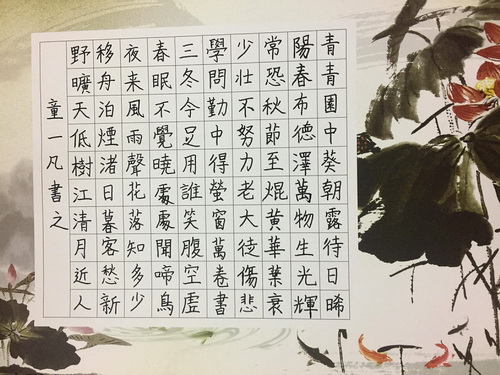 青青園中葵朝露待日晞
陽春布德澤萬物生光輝
常恐秋節至焜黄華葉衰
少壮不努力老大徒傷悲
學問勤中得螢窗萬卷書
三冬今足用誰笑腹空虛
春眠不覺曉處處聞啼鳥
夜来風雨聲花落知多少
移舟泊煙渚日暮客愁新
野曠天低樹江清月近人
童一凡書之